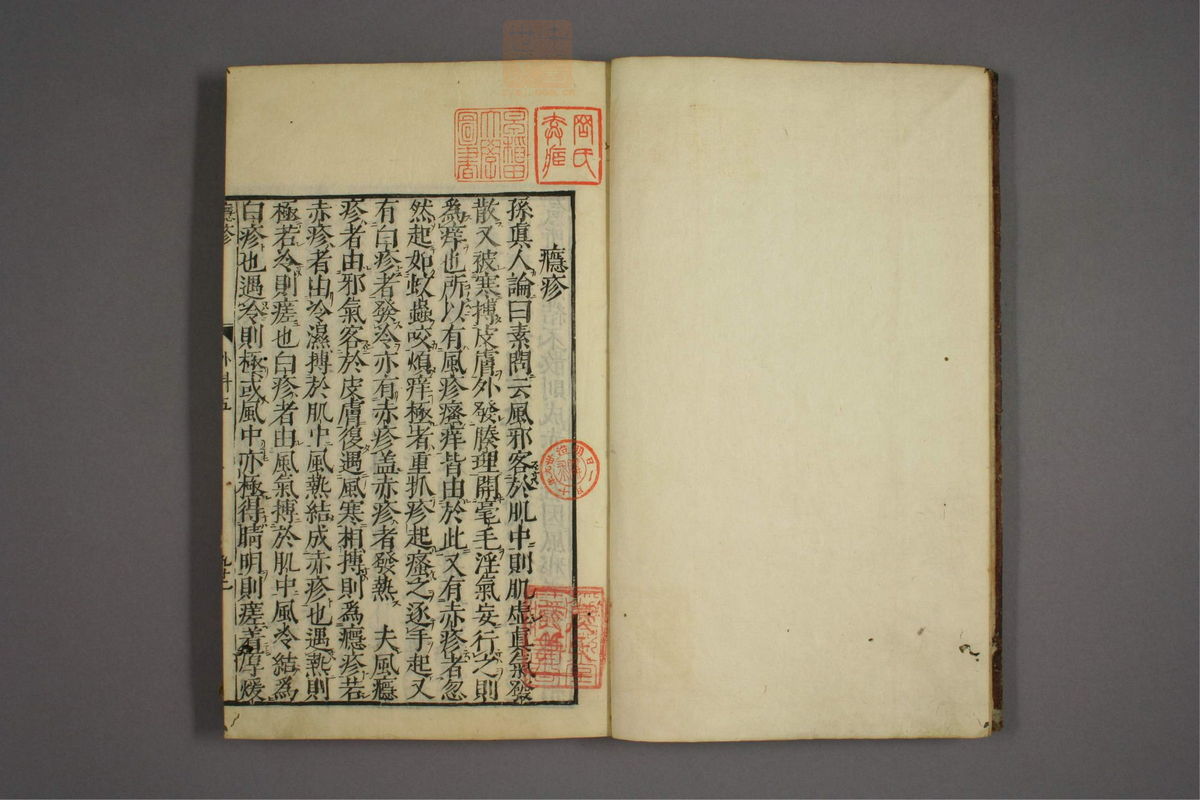 癮疹
孫真人論曰素問云風邪客於肌中則肌虛真氣發
散又被寒搏皮膚外發腠理開毫毛淫氣妄行之則
為痒也所以有風疹瘙痒皆由於此又有赤疹者忽
然起如蚊蟲咬煩痒極者重抓疹起瘙之逐手起又
有白疹者發冷亦有赤疹盖赤疹者發熱 夫風癮
疹者由邪氣客於皮膚復遇風寒相搏則為癮疹若
赤疹者由冷濕搏於肌中風熱結成赤疹也遇熱則
極若冷則瘥也白疹者由風氣搏於肌中風冷結為
白疹也遇冷則極或風中亦極得晴明則瘥着厚煖
癮疹
外科五
早稻田大學圖書